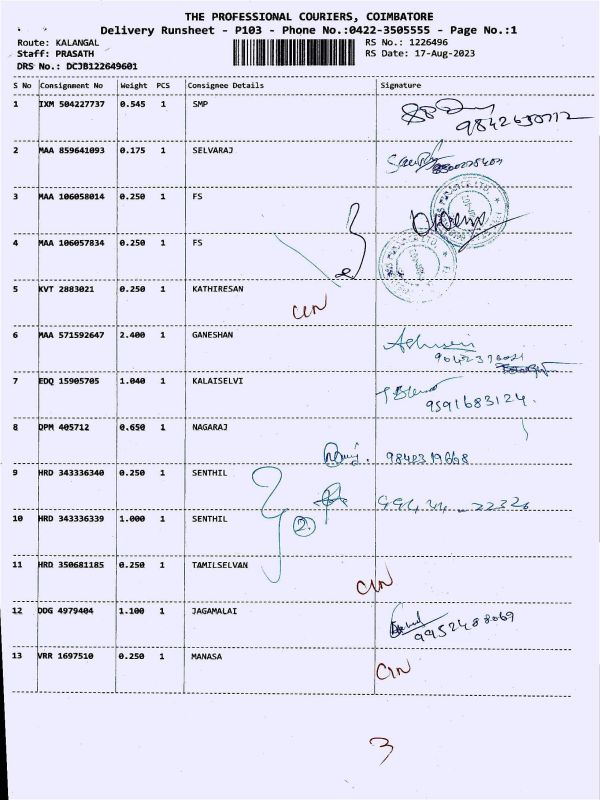 THE PROFESSIONAL COURIERS, COIMBATORE
Delivery Runsheet - P103 - Phone No.:0422-3505555 - Page No.:1
Route: KALANGAL RS No.: 1226496
Staff: PRASATH RS Date: 17-Aug-2023
DRS No.: DCJB122649601
S No Consignment No Weight PCS Consignee Details Signature
1 IXM 504227737 0.545 1 SMP
2 MAA 859641093 0.175 1 SELVARAJ
3 MAA 106058014 0.250 1 FS
4 MAA 106057834 0.250 1 FS
5 KVT 2883021 0.250 1 KATHIRESAN
CIN
6 MAA 571592647 2.400 1 GANESHAN
7 EDQ 15905705 1.040 1 KALAISELVI
9591683124.
8 DPM 405712 0.650 1 NAGARAJ
9 HRD 343336340 0.250 1 SENTHIL
10 HRD 343336339 1.000 1 SENTHIL
2.
11 HRD 350681185 0.250 1 TAMILSELVAN
CIN
12 DDG 4979404 1.100 1 JAGAMALAI
9952488069
13 VRR 1697510 0.250 1 MANASA
CIN
3